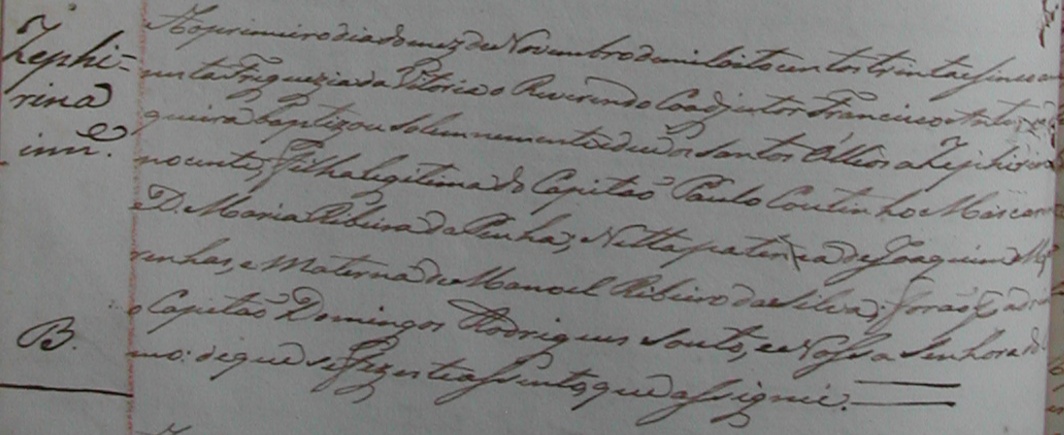 Zephi=
rina
inn.e
B.
Ao primeiro dia do mez de Novembro de mil oito centos trinta e sinco an
nesta Freguezia da Vitoria o Reverendo Coadjutor Francisco Anto
queira baptizou solemnemente e deu os Santos Óllios a Zephirina
nocente, Filha legitima do Capitaõ Paulo Coutinho Mascare
D. Maria Ribeira da Penha; Netta paterna de Joaquim Mas
renhas, e Materna de Manoel Ribeiro da Silva; foraõ Padr
o Capitaõ Domingos Rodrigues Souto, e a Nossa Senhora do
mo: de que se fez este assento, que assignei.